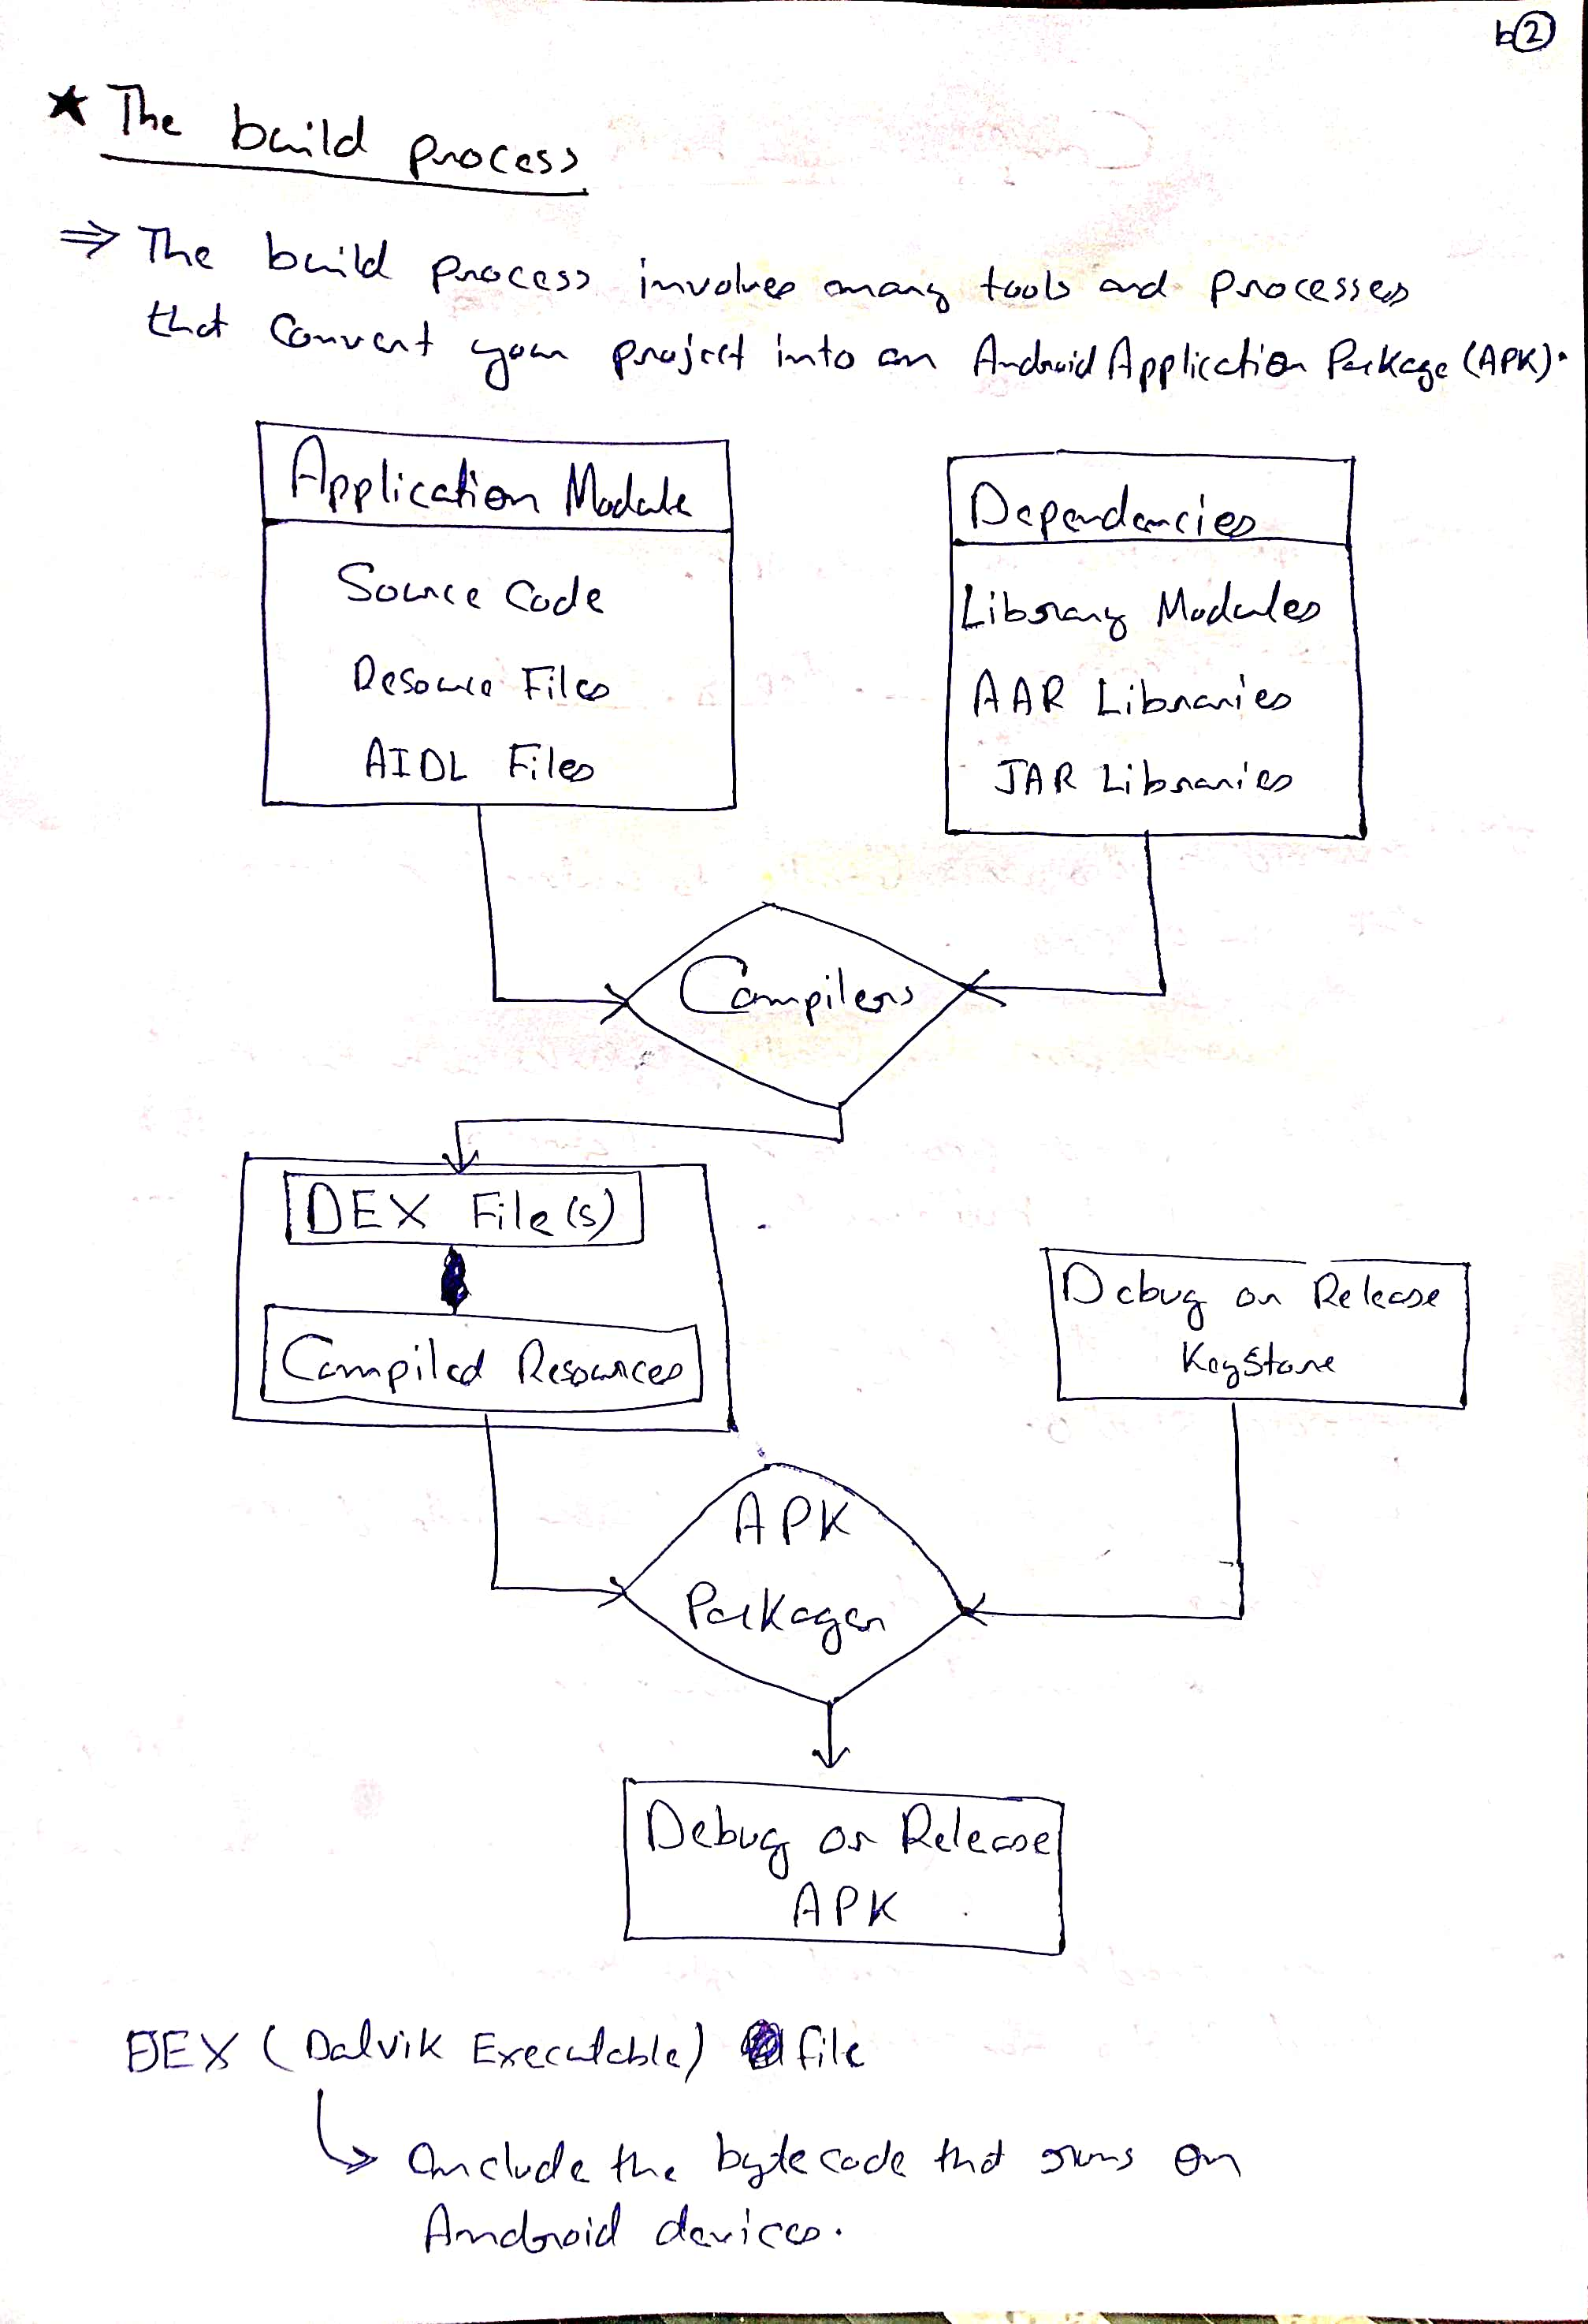 b②
★ The build process
⇒ The build process involves many tools and processes
that convert your project into an Android Application Package (APK).
Application Module
Source Code
Resource Files
AIDL Files
Dependencies
Library Modules
AAR Libraries
JAR Libraries
Compilers
DEX File(s)
Compiled Resources
Debug or Release
KeyStore
APK
Packager
Debug or Release
APK
DEX (Dalvik Executable) file
↳ Include the bytecode that runs on
Android devices.